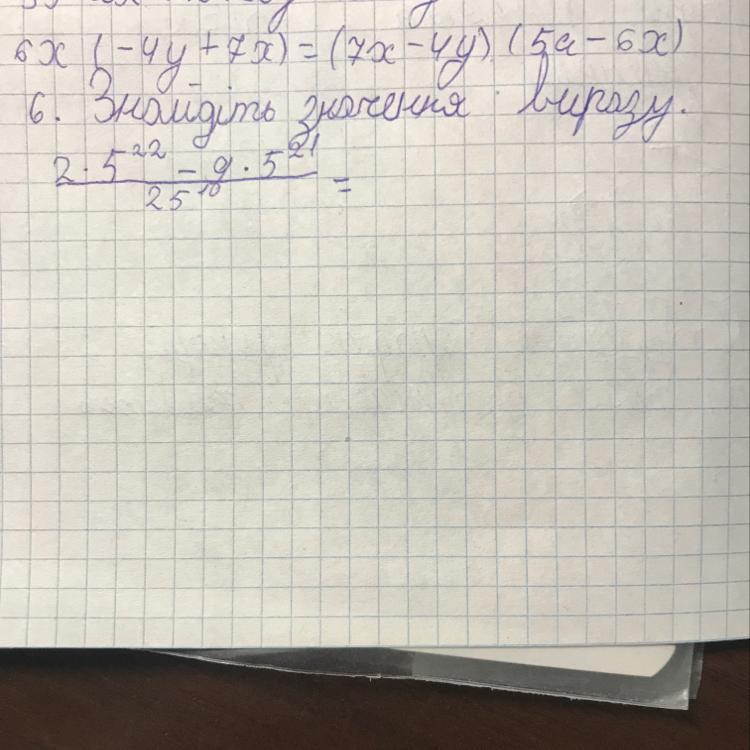 6x (-4y + 7x) = (7x - 4y) (5a - 6x)
6. Знайдіть значення виразу.
2 · 5²² - 9 · 5²¹
25¹⁰ =